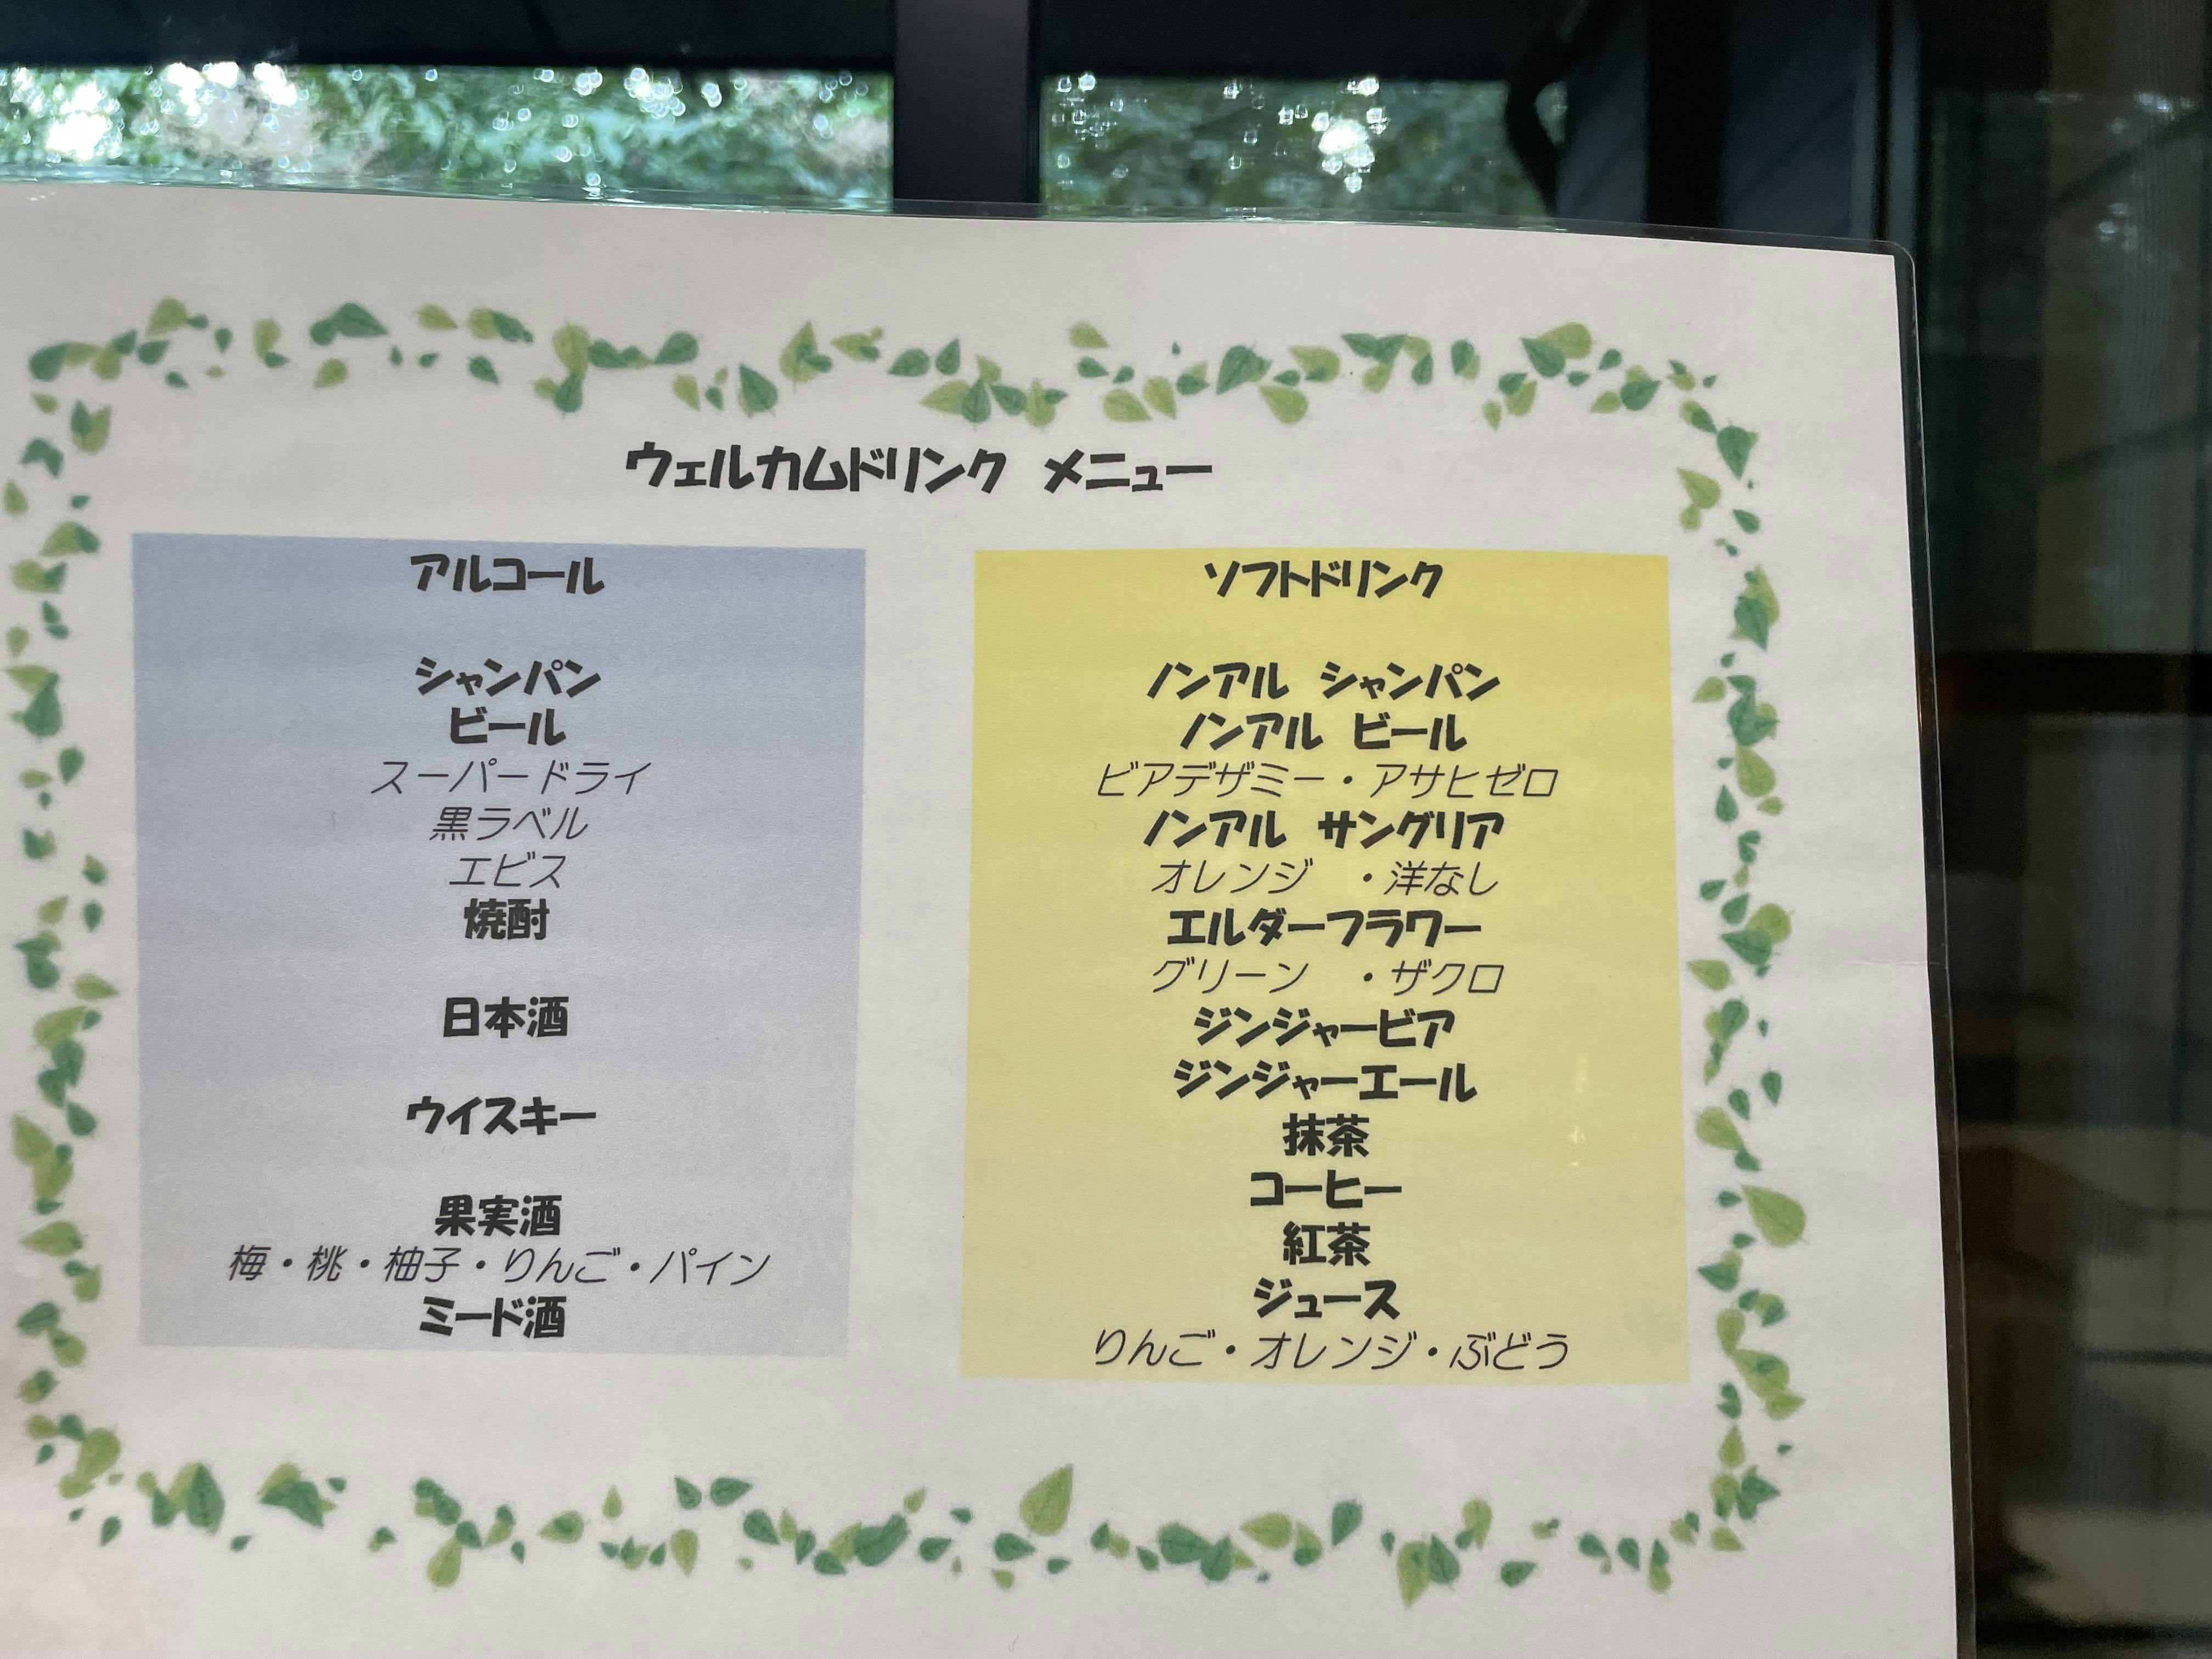 ウェルカムドリンク メニュー
アルコール
シャンパン
ビール
スーパードライ
黒ラベル
エビス
焼酎
日本酒
ウイスキー
果実酒
梅・桃・柚子・りんご・パイン
ミード酒
ソフトドリンク
ノンアル シャンパン
ノンアル ビール
ビアデザミー・アサヒゼロ
ノンアル サングリア
オレンジ ・洋なし
エルダーフラワー
グリーン ・ザクロ
ジンジャービア
ジンジャーエール
抹茶
コーヒー
紅茶
ジュース
りんご・オレンジ・ぶどう